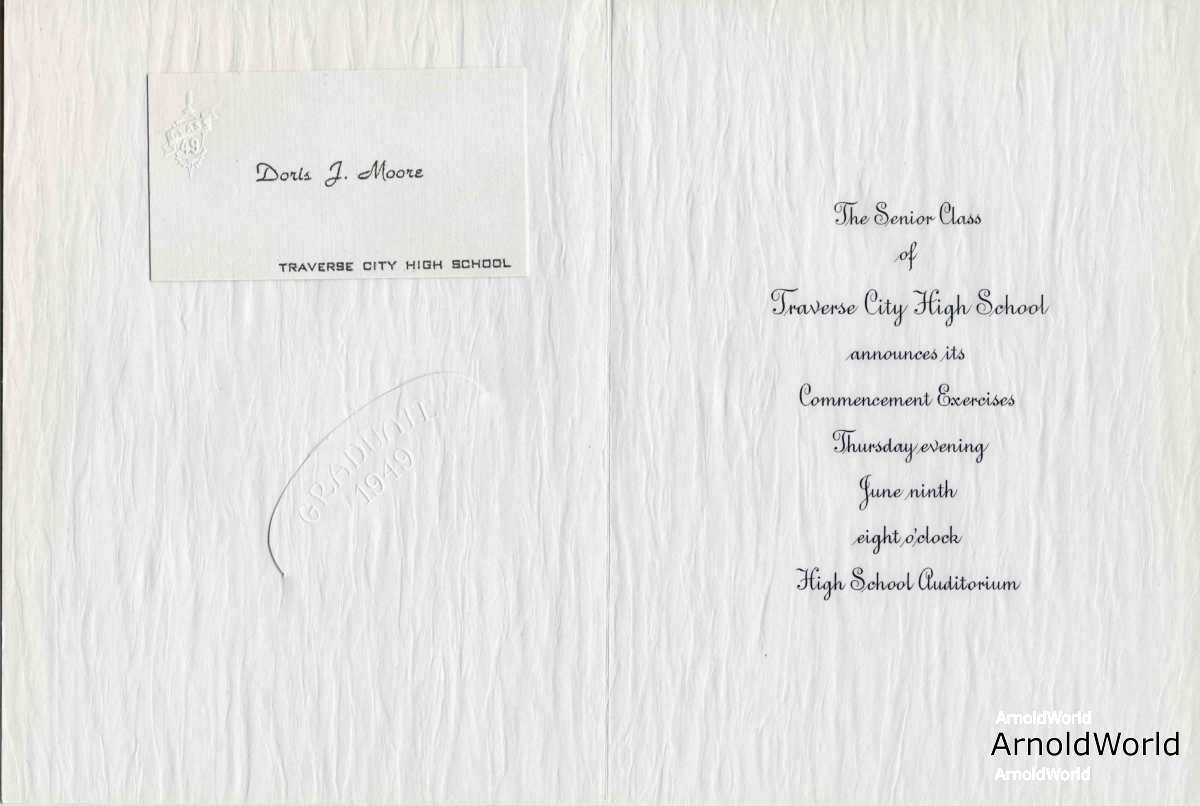 CLASS
49
Doris J. Moore
TRAVERSE CITY HIGH SCHOOL
GRADUATE
1949
The Senior Class
of
Traverse City High School
announces its
Commencement Exercises
Thursday evening
June ninth
eight o'clock
High School Auditorium
ArnoldWorld
ArnoldWorld
ArnoldWorld